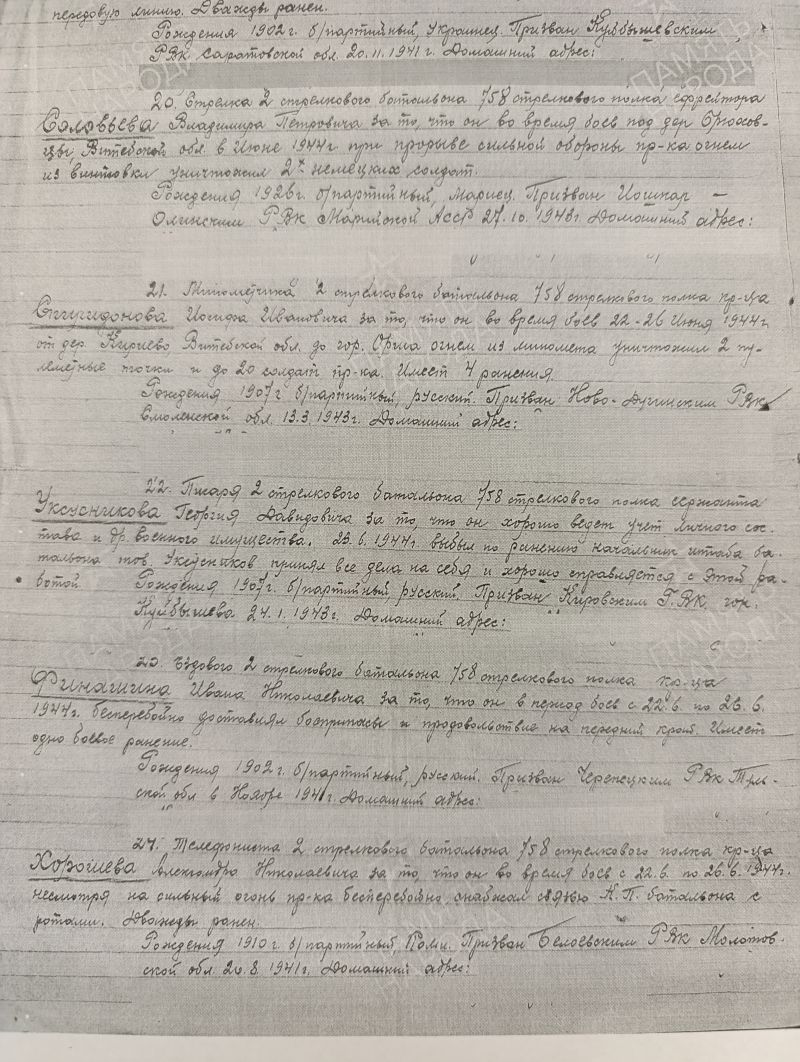 передовую линию. Дважды ранен.
Рождения 1902 г. б/партийный, Украинец. Призван Куйбышевским
РВК Саратовской обл. 20.11.1941 г. Домашний адрес:
20. Стрелка 2 стрелкового батальона 758 стрелкового полка ефрейтора
Соловьева Владимира Петровича за то, что он во время боев под дер
Витебской обл. в Июне 1944 г при прорыве сильной обороны пр-ка огнем
из винтовки уничтожил 2х немецких солдат.
Рождения 1926 г. б/партийный, Мариец. Призван Иошкар-
Олинским РВК Марийской АССР 27.10.1943 г. Домашний адрес:
21. Минометчика 2 стрелкового батальона 758 стрелкового полка кр-ца
Спиридонова Иосифа Ивановича за то, что он во время боев 22-26 Июня 1944 г.
от дер. Витебской обл. до гор. Орша огнем из миномета уничтожил 2 пу-
леметные точки и до 20 солдат пр-ка. Имеет 4 ранения.
Рождения 1907 г б/партийный, русский. Призван Ново-Дугинским РВК
Смоленской обл. 13.3.1943 г. Домашний адрес:
22. Писаря 2 стрелкового батальона 758 стрелкового полка сержанта
Уксусникова Георгия Давидовича за то, что он хорошо ведет учет личного сос-
тава и др. военного имущества. 23.6.1944 г. выбыл по ранению начальник штаба ба-
тальона тов. Уксусников принял все дела на себя и хорошо справляется с этой ра-
ботой.
Рождения 1907 г. б/партийный, русский. Призван Кировским РВК, гор.
Куйбышева 24.1.1943 г. Домашний адрес:
23. Ездового 2 стрелкового батальона 758 стрелкового полка кр-ца
Финашина Ивана Николаевича за то, что он в период боев с 22.6. по 26.6.
1944 г. бесперебойно доставлял боеприпасы и продовольствие на передний край. Имеет
одно боевое ранение.
Рождения 1902 г. б/партийный, русский. Призван Черепецким РВК Туль-
ской обл в Ноябре 1941 г. Домашний адрес:
24. Телефониста 2 стрелкового батальона 758 стрелкового полка кр-ца
Хорошева Александра Николаевича за то, что он во время боев с 22.6. по 26.6.1944 г.
несмотря на сильный огонь пр-ка бесперебойно снабжал связью К.П. батальона с
ротами. Дважды ранен.
Рождения 1910 г. б/партийный, Коми. Призван Белоевским РВК Молотов-
ской обл. 20.8.1941 г. Домашний адрес: